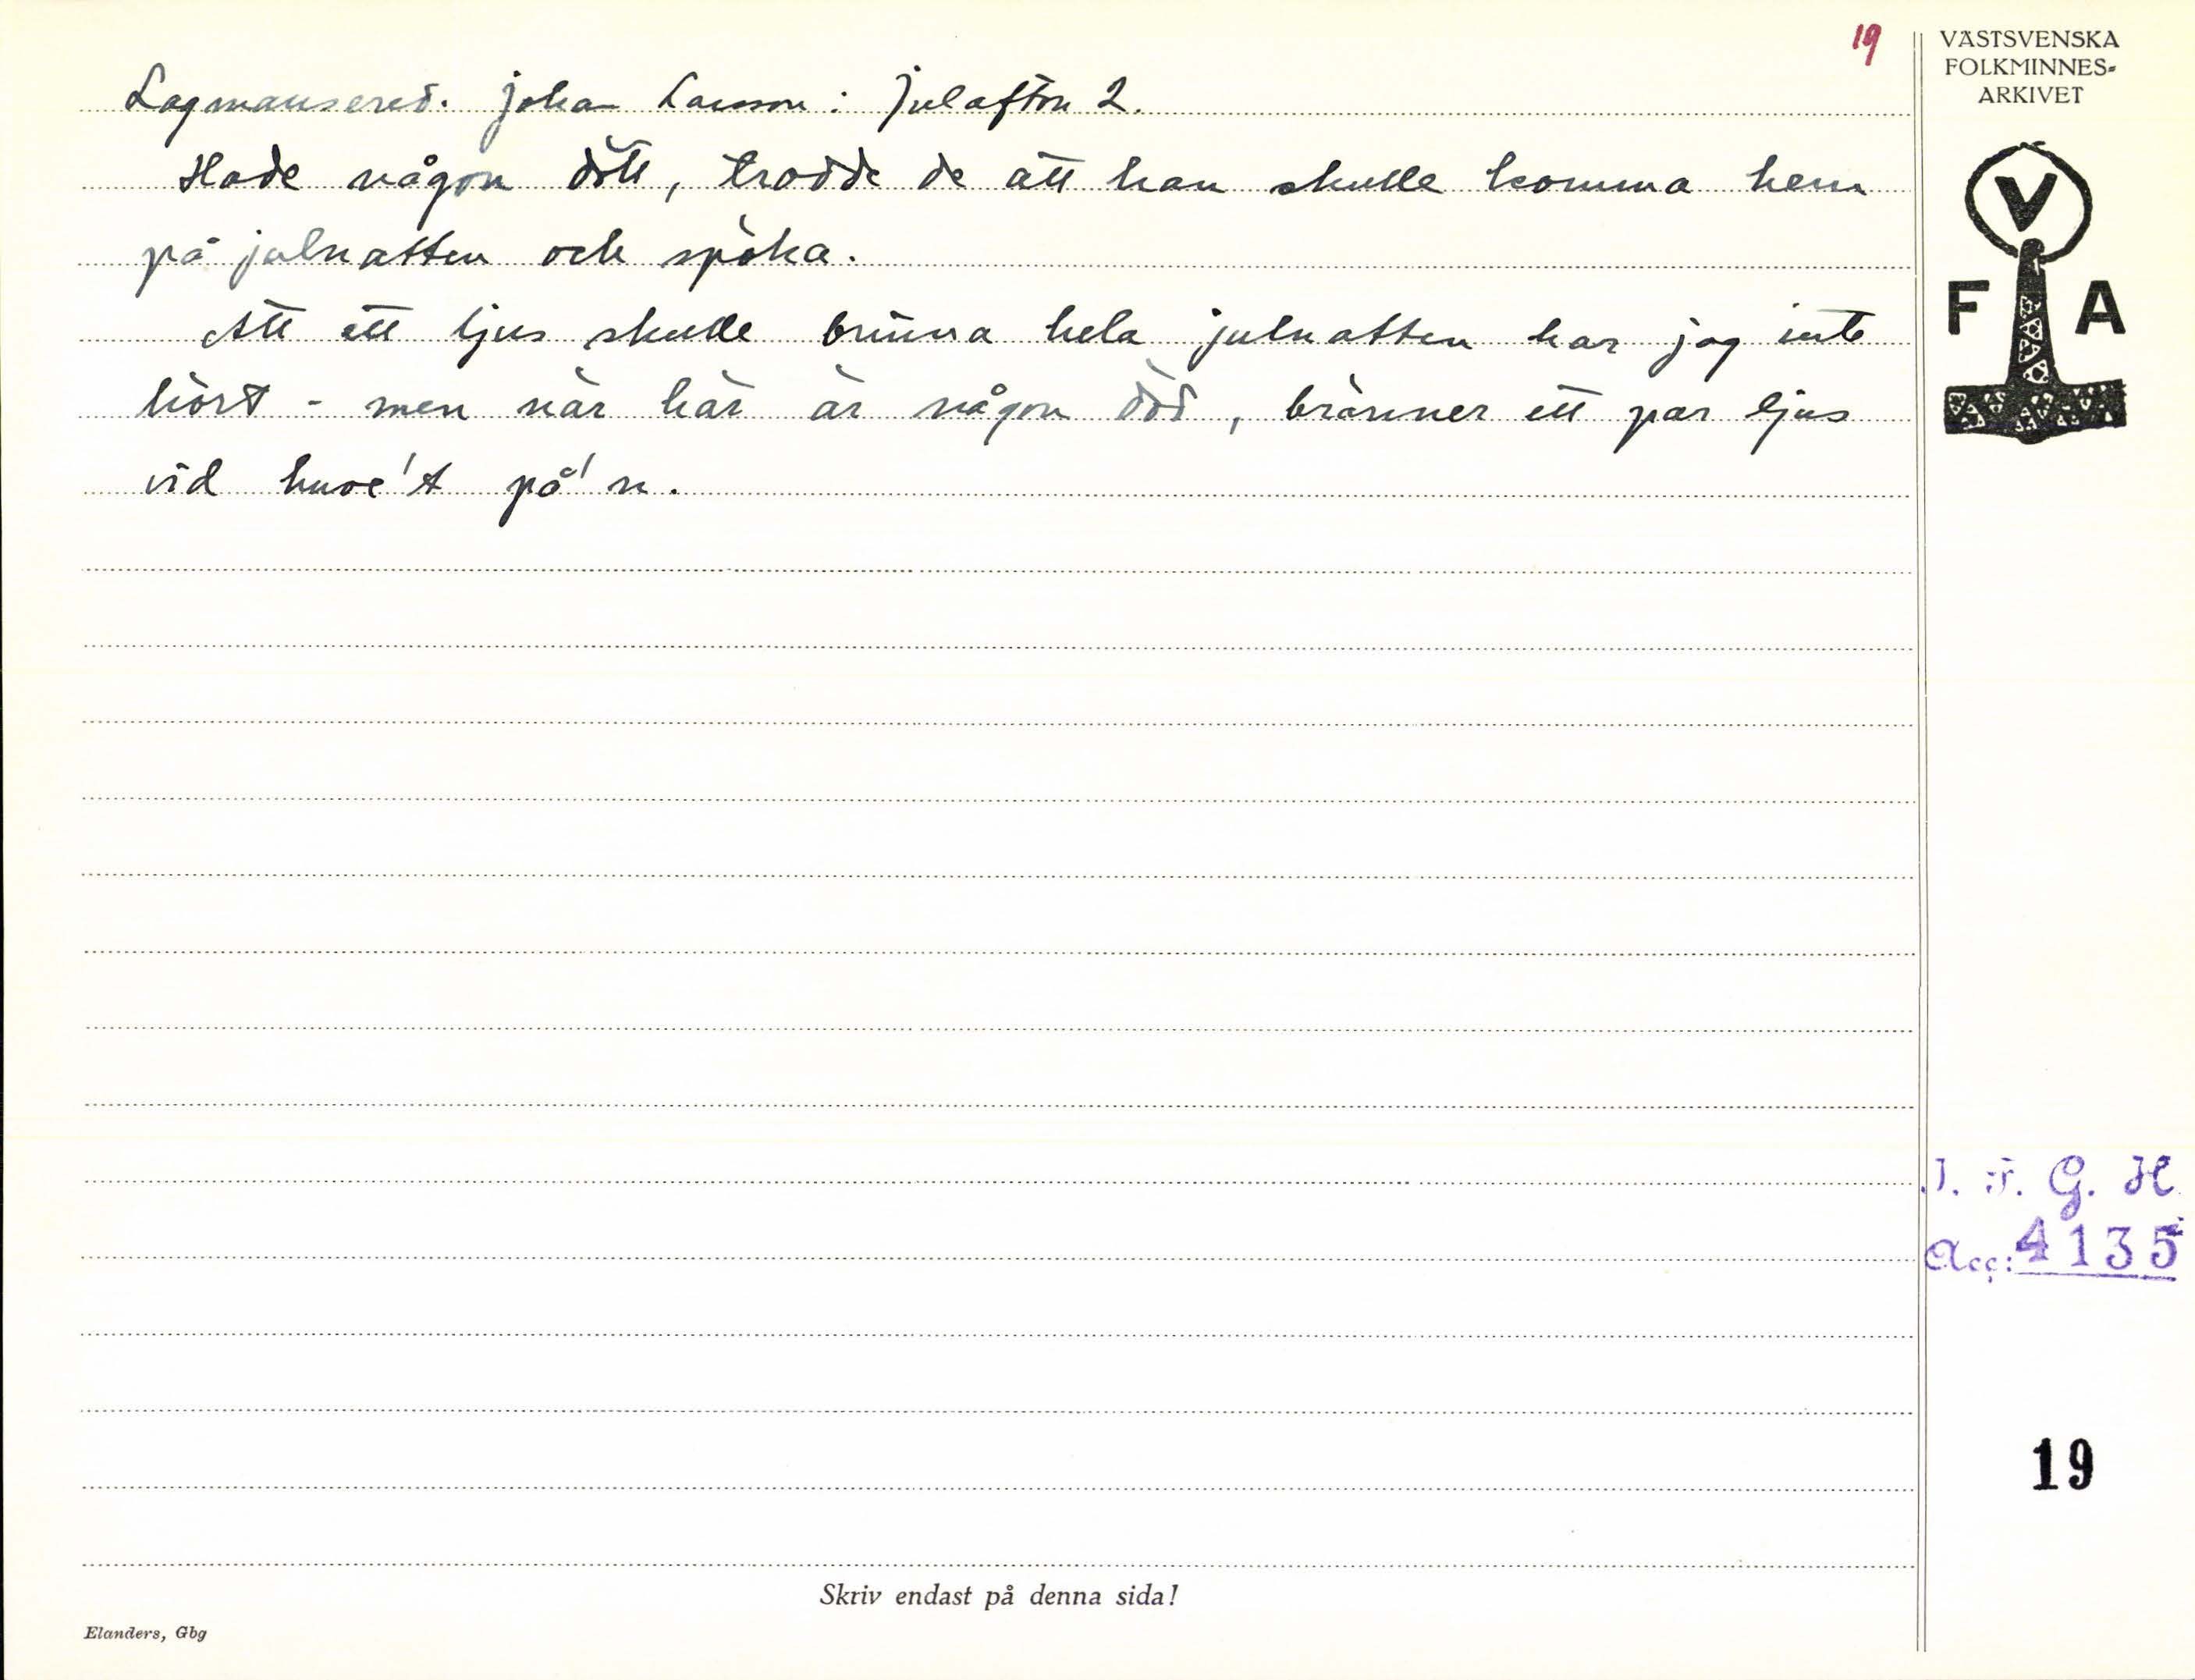 19
Lagmansered. Johan Larsson: Julafton 2.
Hade någon dött, trodde de att han skulle komma hem
på julnatten och spöka.
Att ett ljus skulle brinna hela julnatten har jag inte
hört - men när här är någon död, bränner ett par ljus
vid huve't på'n.
VÄSTSVENSKA
FOLKMINNES-
ARKIVET
V
F A
I. F. G. H.
Acc: 4135
19
Skriv endast på denna sida!
Elanders, Gbg